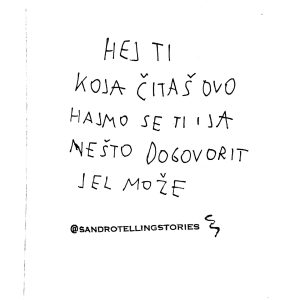 HEJ TI
KOJA ČITAŠ OVO
HAJMO SE TI I JA
NEŠTO DOGOVORIT
JEL MOŽE
@SANDROTELLINGSTORIES